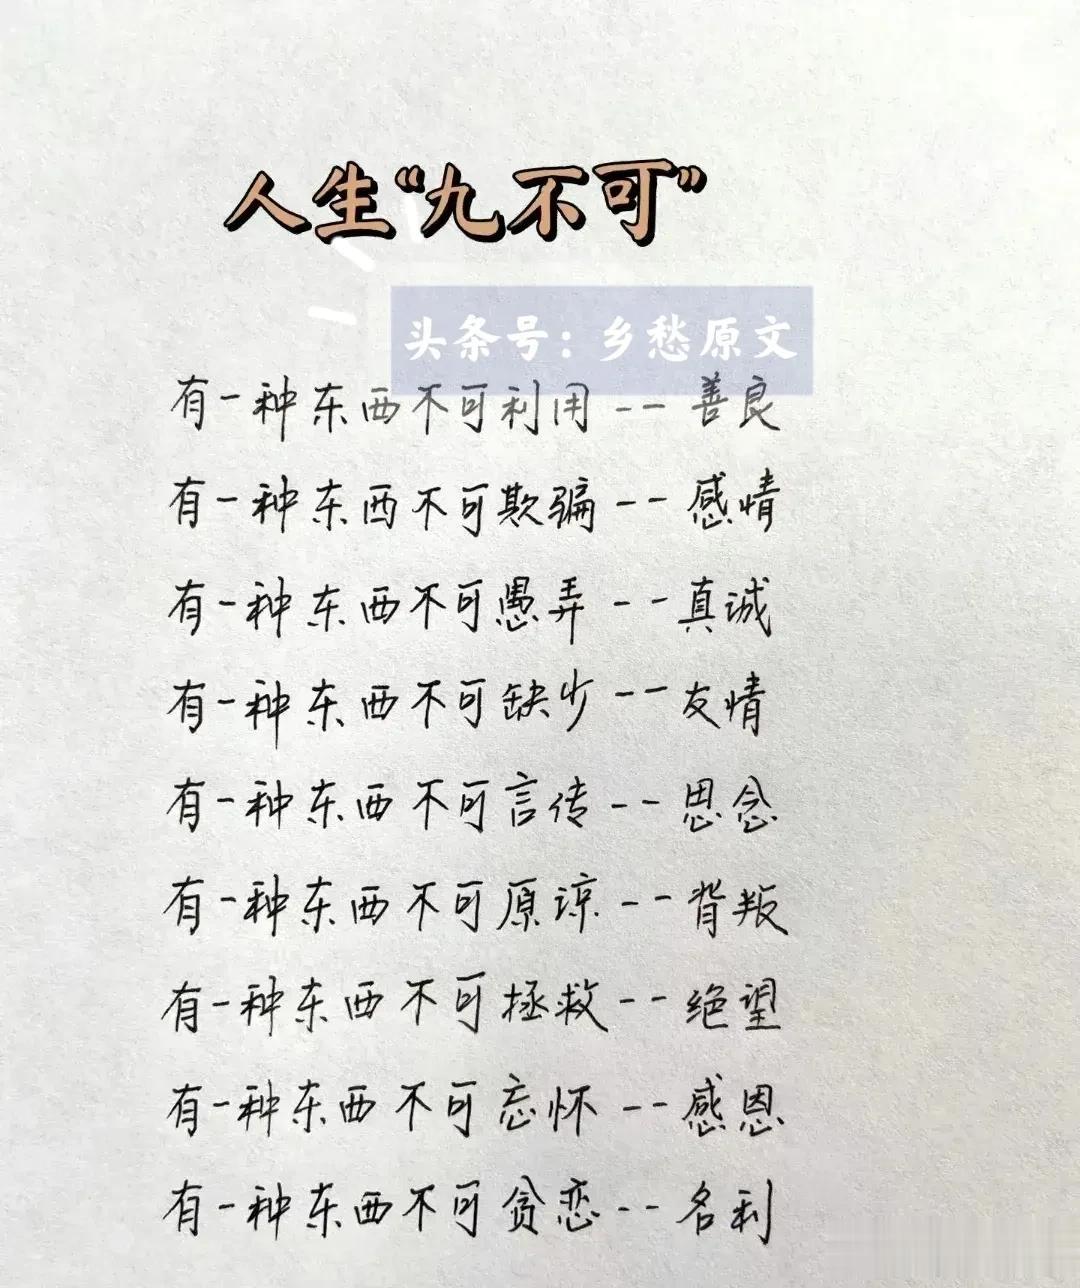 人生“九不可”
头条号：乡愁原文
有一种东西不可利用--善良
有一种东西不可欺骗--感情
有一种东西不可愚弄--真诚
有一种东西不可缺少--友情
有一种东西不可言传--思念
有一种东西不可原谅--背叛
有一种东西不可拯救--绝望
有一种东西不可忘怀--感恩
有一种东西不可贪恋--名利